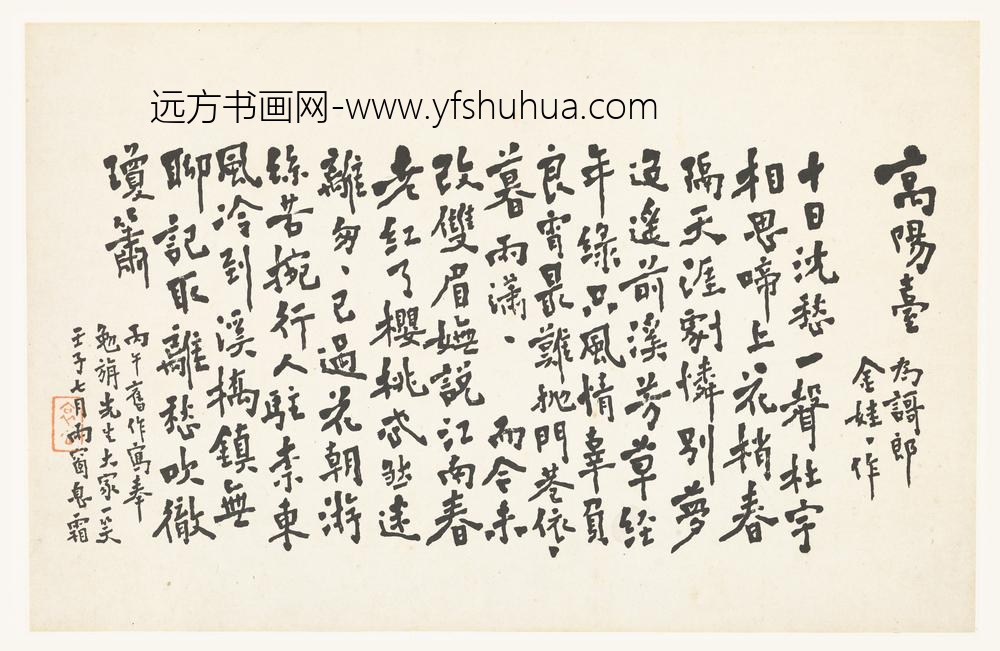 远方书画网-www.yfshuhua.com
高陽臺
为謌郎
金娃〻作
十日沈愁一聲杜宇
相思啼上花梢春
隔天涯劇憐別夢
迢遙前溪芳草经
年綠只風情辜負
良宵最難抛門巷依〻
暮雨瀟〻而今未
改雙眉嫵説江南春
老紅了櫻桃忒煞迷
離匆〻已過花朝游
絲苦挽行人駐柰東
風冷到溪橋鎮無
聊記取離愁吹徹
瓊簫
丙午舊作寫奉
勉旃先生大家一笑
壬子七月雨窗息霜